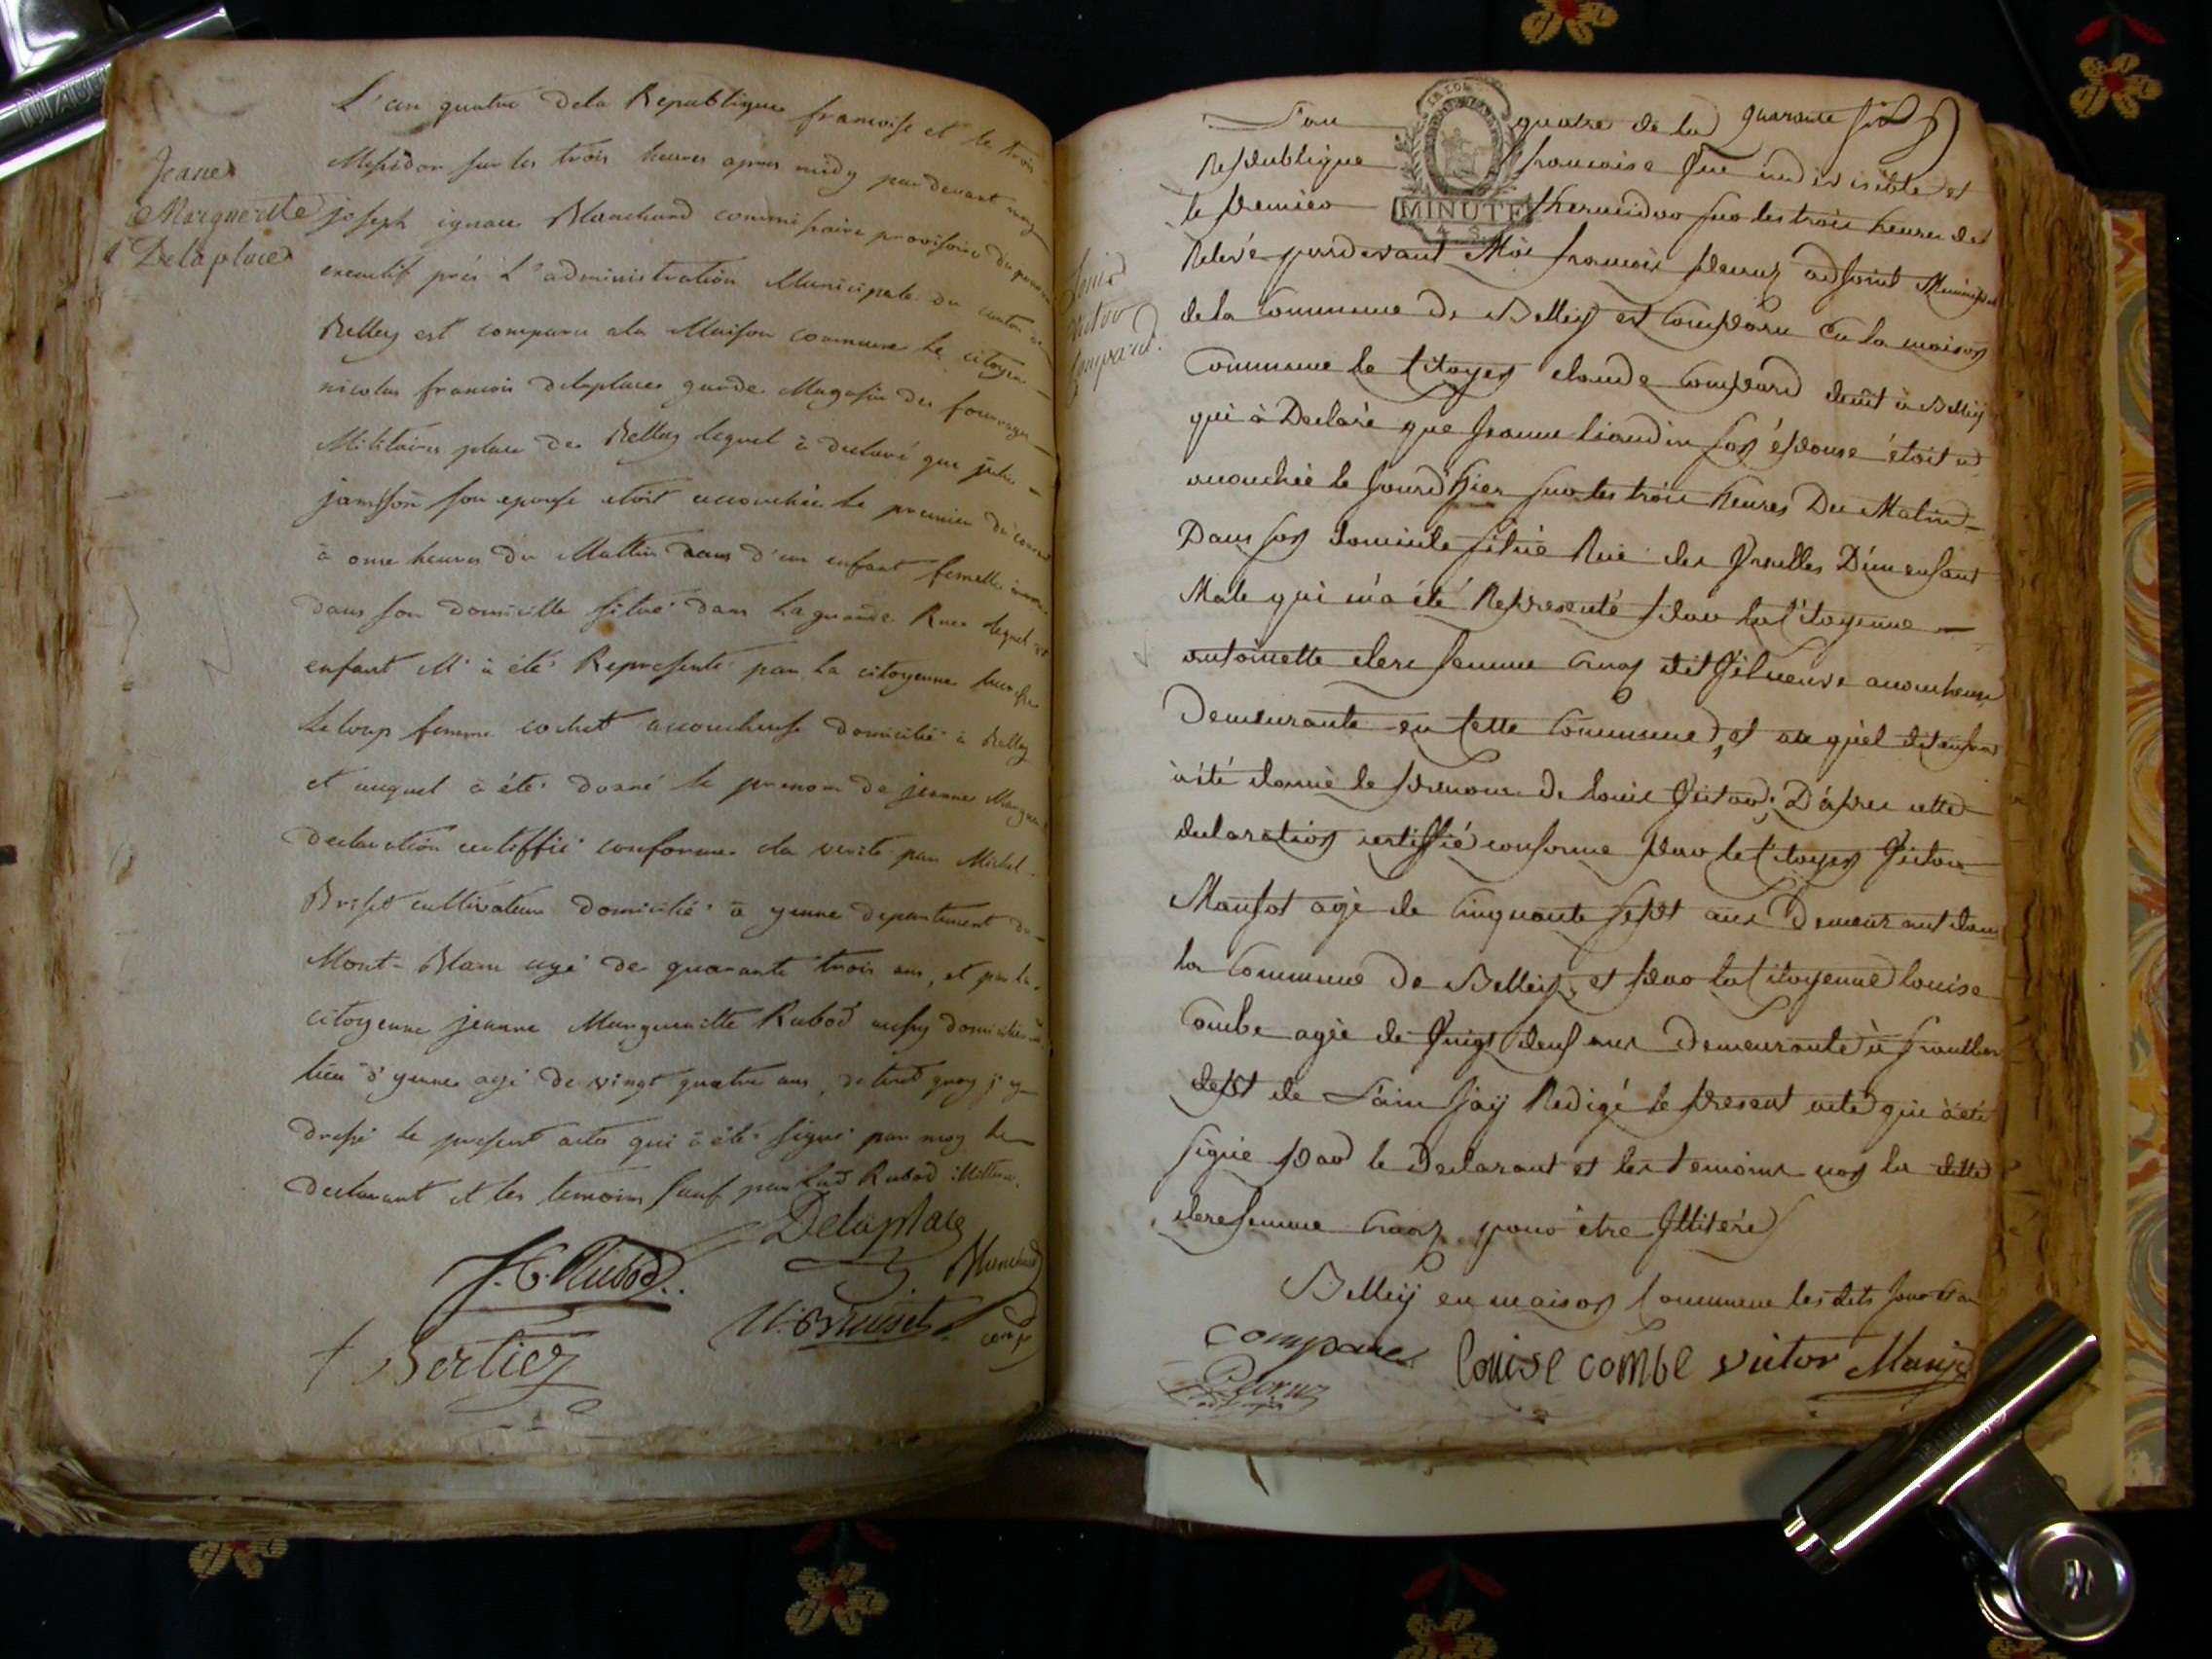 Jeane
Marguerite
Delaplace
L'an quatre de la Republique francoise et le trois
Messidor sur les trois heures apres midy par devant moy
joseph ignace Blanchard commissaire provisoire du pouvoir
executif près L'administration Municipale du canton de
Belley est comparu a la Maison commune le citoyen
nicolas francois delaplace garde Magasin des fourrages
Militaires place de Belley lequel à declaré que julie
jamsson son epouse etoit accouchée le premier du courant
à onze heures du Mattin dans d'un enfant femelle
dans son domicille situé dans la grande Rue lequel
enfant M'à été Representé par la citoyenne
Leloup femme cochet accoucheuse domicilié à Belley
et auquel à été donné le prenom de jeanne Marguerite
declaration certiffié conforme a la verité par Michel
Briset cultivateur domicilié à yenne departement du
Mont-Blanc agé de quarante trois ans, et par la
citoyenne jeanne Marguerite Rubod aussy domiciliée
lieu d'yenne agé de vingt quatre ans, de tout quoy j'ay
dressé le present acte qui à été signé par moy le
declarant et les temoins sauf par Rubod
Delaplace
Rubod Blanchard
Bertier
MINUTE
L'an quatre de la quarante six
Republique francoise une indivisible et
le premier thermidor sur les trois heures de
Relevé pardevant Moi francois adjoint Municipal
de la commune de Belley est comparu en la maison
Commune le Citoyen claude compard dem.t à Belley
qui à Declaré que jeanne liaudin son épouse étoit
accouchée le jourd'hier sur les trois heures Du Matin
Dans son domicile situé Rue des Ursulles D'un enfant
Male qui m'a été Representé par la Citoyenne
antoinette clere femme Cruaz dit accoucheuse
Demeurante en cette commune, et auquel dit enfant
à été donné le prenom de louis Victor; D'après cette
declaration certiffié conforme par le Citoyen Victor
Manjot agé de cinquante sept ans Demeurant dans
la Commune de Belley, et par la Citoyenne louise
Combe agée de vingt deux ans Demeurante à
dep.t de L'ain J'ay Redigé le present acte qui à été
signé par le Declarant et les temoins non la ditte
clere femme Cruaz pour être Illitéré
Belley en maison Commune les dits jour et an
louis
victor
compard.
compare louise combe victor Manjot